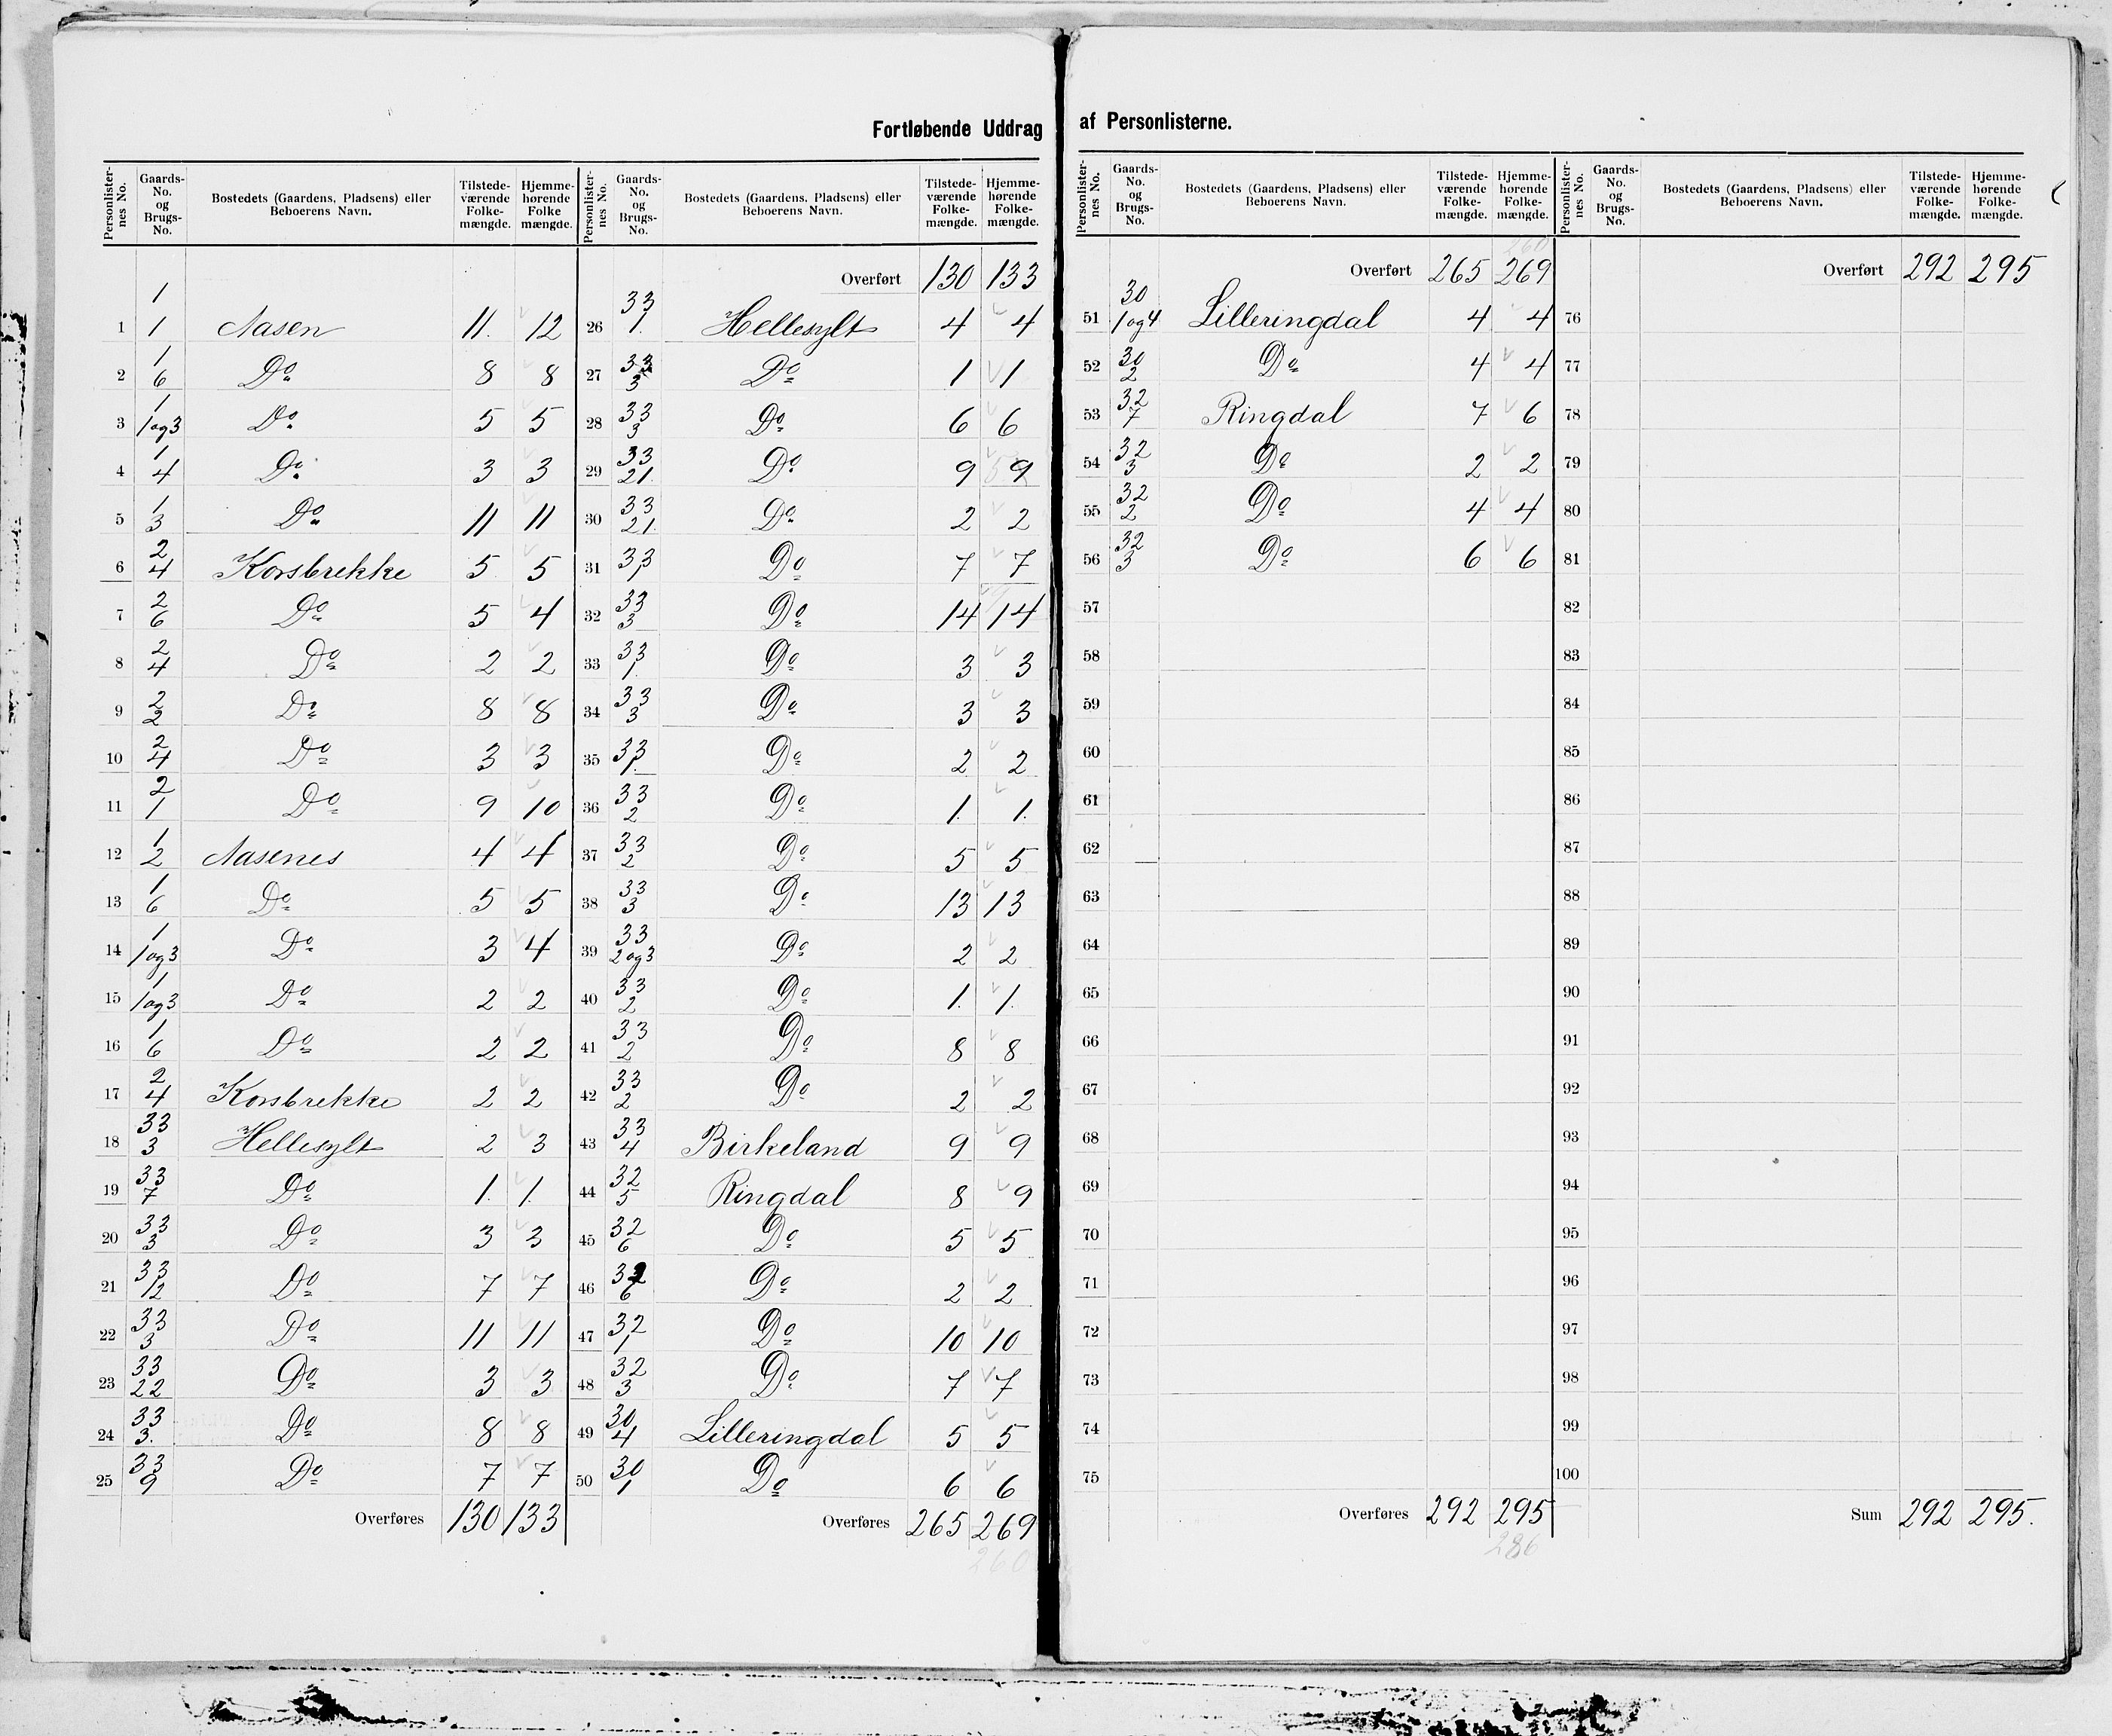 Fortløbende Uddrag af Personlisterne.
Personlisternes No. | Gaards-No. og Brugs-No. | Bostedets (Gaardens, Pladsens) eller Beboerens Navn. | Tilstedeværende Folkemængde. | Hjemmehørende Folkemængde.
1 | 1 / 1 | Aasen | 11. | 12
2 | 1 / 6 | Do | 8 | 8
3 | 1 / 1 og 3 | Do | 5 | 5
4 | 1 / 4 | Do | 3 | 3
5 | 1 / 3 | Do | 11 | 11
6 | 2 / 4 | Korsbrekke | 5 | 5
7 | 2 / 6 | Do | 5 | 4
8 | 2 / 4 | Do | 2 | 2
9 | 2 / 2 | Do | 8 | 8
10 | 2 / 4 | Do | 3 | 3
11 | 2 / 1 | Do | 9 | 10
12 | 1 / 2 | Aasenes | 4 | 4
13 | 1 / 6 | Do | 5 | 5
14 | 1 / 1 og 3 | Do | 3 | 4
15 | 1 / 1 og 3 | Do | 2 | 2
16 | 1 / 6 | Do | 2 | 2
17 | 2 / 4 | Korsbrekke | 2 | 2
18 | 33 / 3 | Hellesylt | 2 | 3
19 | 33 / 7 | Do | 1. | 1.
20 | 33 / 3 | Do | 3 | 3
21 | 33 / 12 | Do | 7 | 7
22 | 33 / 3 | Do | 11 | 11
23 | 33 / 22 | Do | 3 | 3
24 | 33 / 3. | Do | 8 | 8
25 | 33 / 9 | Do | 7 | 7
Overføres | 130 | 133
Personlisternes No. | Gaards-No. og Brugs-No. | Bostedets (Gaardens, Pladsens) eller Beboerens Navn. | Tilstedeværende Folkemængde. | Hjemmehørende Folkemængde.
Overført | 130 | 133
26 | 33 / 1. | Hellesylt | 4 | 4
27 | 33 / 3 | Do | 1 | 1
28 | 33 / 3 | Do | 6 | 6
29 | 33 / 21. | Do | 9 | 9
30 | 33 / 21. | Do | 2 | 2
31 | 33 / 1 | Do | 7 | 7
32 | 33 / 3 | Do | 14 | 14
33 | 33 / 1. | Do | 3 | 3
34 | 33 / 3 | Do | 3 | 3
35 | 33 / 1. | Do | 2 | 2
36 | 33 / 2 | Do | 1. | 1.
37 | 33 / 2 | Do | 5 | 5
38 | 33 / 3 | Do | 13 | 13
39 | 33 / 2 og 3 | Do | 2 | 2
40 | 33 / 2 | Do | 1. | 1.
41 | 33 / 2 | Do | 8 | 8
42 | 33 / 2 | Do | 2 | 2
43 | 33 / 4 | Birkeland | 9 | 9
44 | 32 / 5 | Ringdal | 8 | 9
45 | 32 / 6 | Do | 5 | 5
46 | 32 / 6 | Do | 2 | 2
47 | 32 / 1 | Do | 10 | 10
48 | 32 / 3 | Do | 7 | 7
49 | 30 / 4 | Lilleringdal | 5 | 5
50 | 30 / 1 | Do | 6 | 6
Overføres | 265 | 269
260
Personlisternes No. | Gaards-No. og Brugs-No. | Bostedets (Gaardens, Pladsens) eller Beboerens Navn. | Tilstedeværende Folkemængde. | Hjemmehørende Folkemængde.
260
Overført | 265 | 269
51 | 30 / 1 og 4 | Lilleringdal | 4 | 4
52 | 30 / 2 | Do | 4 | 4
53 | 32 / 7 | Ringdal | 7 | 6
54 | 32 / 3 | Do | 2 | 2
55 | 32 / 2 | Do | 4 | 4
56 | 32 / 3 | Do | 6 | 6
57
58
59
60
61
62
63
64
65
66
67
68
69
70
71
72
73
74
75
Overføres | 292 | 295
286
Personlisternes No. | Gaards-No. og Brugs-No. | Bostedets (Gaardens, Pladsens) eller Beboerens Navn. | Tilstedeværende Folkemængde. | Hjemmehørende Folkemængde.
Overført | 292 | 295
76
77
78
79
80
81
82
83
84
85
86
87
88
89
90
91
92
93
94
95
96
97
98
99
100
Sum | 292 | 295.